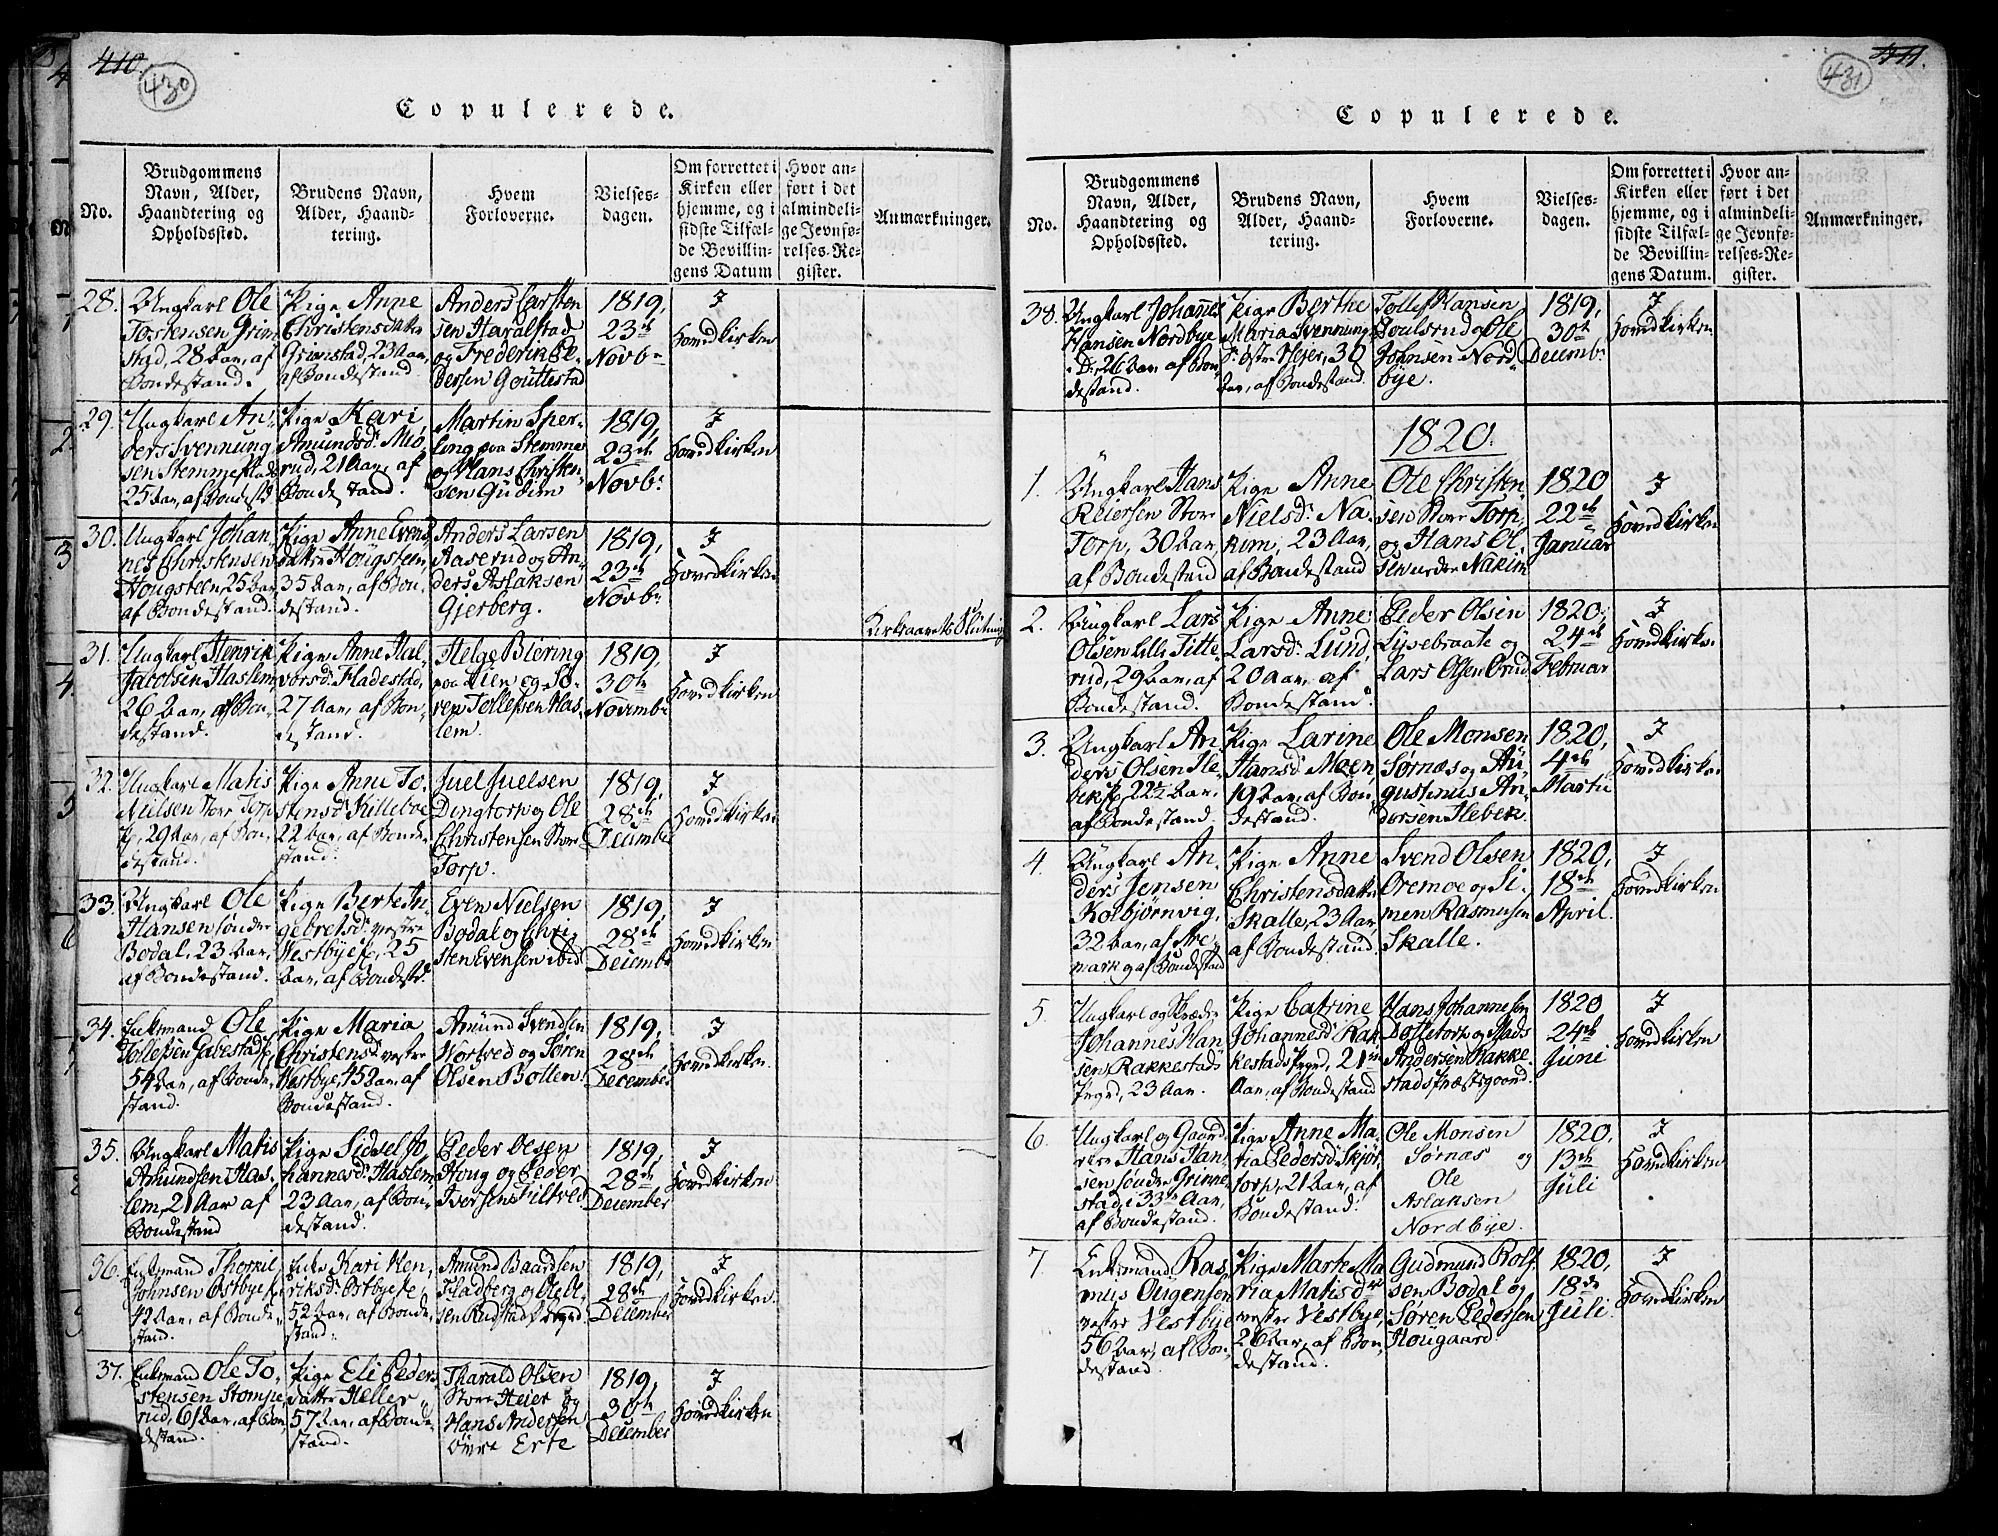 410.
430
Copulerede.
No.
Brudgommens
Navn, Alder,
Haandtering og
Opholdssted.
Brudens Navn,
Alder, Haand-
tering.
Hvem
Forloverne.
Vielses-
dagen.
Om forrettet i
Kirken eller
hjemme, og i
sidste Tilfæl-
de Bevillin-
gens Datum
Hvor an-
ført i det
almindeli-
ge Jevnfø-
relses-Re-
gister.
Anmærkninger.
28.
Ungkarl Ole
Tostensen Grim
stad, 28 Aar, af
Bondestand.
Pige Anne
Christensdatter
Grimstad, 23 Aar,
af Bondestand
Anders Carsten
sen Haralstad
og Frederik Pe-
dersen Gouttestad
1819,
23de
Novbr
I
Hovedkirken
29.
Ungkarl An-
ders Svennung
sen Stemmestad
25 Aar, af Bondestd
Pige Kari
Amundsdr Mio
rud, 21 Aar, af
Bondestand.
Martin Sper-
ling paa Stemme
og Hans Christen-
sen Gudim
1819,
23de
Novbr
I
Hovedkirken
30.
Ungkarl Johan-
nes Christensen
Hougsteen, 25 Aar
af Bondestand.
Pige Anne Evens
datter Hougsteen,
35 Aar, af Bon-
destand.
Anders Larsen
Aaserud og An-
ders Aslaksen
Gjerberg.
1819,
23de
Novbr
I
Hovedkirken
Kirkeaarets Slutning
31.
Ungkarl Henrik
Jacobsen Haslem,
26 Aar, af Bon-
destand.
Pige Anne Hal-
vorsdr Fladestad,
27 Aar, af Bon-
destand.
Helge Biering
paa Lien og Sø-
ren Tollefsen Has-
lem.
1819,
30te
Novembr
I
Hovedkirken
32.
Ungkarl Matis
Nielsen Store Torp
29 Aar, af Bon-
destand.
Pige Anne To-
stensdr Killeboe
22 Aar, af Bonde-
stand.
Juel Juelsen
Dingtorp og Ole
Christensen Store
Torp.
1819,
28de
December
I
Hovedkirken
33.
Ungkarl Ole
Hansen søndre
Bodal, 23 Aar,
af Bondestand.
Pige Berte In-
gebretsdr vestre
Vestbye, 25
Aar, af Bondestd.
Even Nielsen
Bodal og Chri-
sten Evensen ibid
1819,
28de
Decembr
I
Hovedkirken
34.
Enkemand Ole
Tollefsen Gabestad,
54 Aar, af Bonde-
stand.
Pige Maria
Christensdr vestre
Vestbye, 45 Aar, af
Bondestand.
Amund Svendsen
Wortved og Søren
Olsen Bolten
1819,
28de
December
I
Hovedkirken
35.
Ungkarl Matis
Amundsen Has-
lem, 21 Aar af
Bondestand
Pige Sidsel Jo-
hannesdr Haslem
23 Aar, af Bon-
destand.
Peder Olsen
Houg og Peder
Iversen Tiltved
1819,
28de
December
I
Hovedkirken
36.
Enkemand Thorkil
Johnsen Østbye,
42 Aar, af Bonde-
stand.
Enke Kari Hen-
riksdr Østbye
52 Aar, af Bonde-
stand.
Amund Baardsen
Fladberg og Ole
1819,
28de
December
I
Hovedkirken.
37.
Enkemand Ole To-
stensen Stompe
rud, 61 Aar, af Bon
destand.
Pige Eli Peders
datter Heller
57 Aar, af Bonde-
stand.
Tharald Olsen
Store Heier og
Hans Andersen
øvre Erte
1819,
30te
December
I
Hovedkirken
411.
431
Copulerede.
No.
Brudgommens
Navn, Alder,
Haandtering og
Opholdssted.
Brudens Navn,
Alder, Haand-
tering.
Hvem
Forloverne.
Vielses-
dagen.
Om forrettet i
Kirken eller
hjemme, og i
sidste Tilfæl-
de Bevillin-
gens Datum.
Hvor an-
ført i det
almindeli-
ge Jevnfø-
relses-Re-
gister.
Anmærkninger.
38.
Ungkarl Johannes
Hansen Nordbye
26 Aar, af Bon-
destand.
Pige Berthe
Maria Svennungs
dr østre Hejer, 30
Aar, af Bondestand.
Tollef Hansen
Poulsrud og Ole
Johnsen Nord-
bye.
1819,
30te
Decembr
I
Hovedkirken
1820.
1.
Ungkarl Hans
Reiersen Store
Torp, 30 Aar,
af Bondestand
Pige Anne
Nielsdr Na-
kim, 23 Aar,
af Bondestand
Ole Christen-
sen Store Torp,
og Hans Ol-
sen nedre Nakim
1820
22de
Januar
I
Hovedkirken
2.
Ungkarl Lars
Olsen lille Titte-
rud, 29 Aar, af
Bondestand.
Pige Anne
Larsdr Lund,
20 Aar, af
Bondestand.
Peder Olsen
Lysebraate og
Lars Olsen Ørud
1820,
24de
Februar
I
Hovedkirken
3.
Ungkarl An-
ders Olsen Ile-
bek, 22½ Aar,
af Bondestand.
Pige Larine
Hansdr Moen
19 Aar, af Bon
destand.
Ole Monsen
Sørnæs og Au-
gustinus An-
dersen Ilebek.
1820,
4de
Martii
I
Hovedkirken
4.
Ungkarl An-
ders Jensen
Kolbjørnvig,
32 Aar, af Are-
mark og af Bondestand
Pige Anne
Christensdatter
Skalle, 23 Aar,
af Bondestand.
Svend Olsen
Oremoe og Si-
men Rasmusen
Skalle.
1820,
18de
April.
I
Hovedkirken
5.
Ungkarl og Skræder
Johannes Han
sen Rakkestads
Prgrd, 23 Aar.
Pige Catrine
Johannesdr Rak
kestads Prgrd, 21
Aar, af Bondestand
Hans Johannesen
Dottetorp og Mads
Andersen Rakke-
stads Præstegaard.
1820
24de
Juni
I
Hovedkirken
6.
Ungkarl og Gaard-
Hans Han-
sen søndre Grime-
stad, i 33te Aar,
af Bondestand.
Pige Anne Ma-
ria Pedersdr Skjør-
torp, 21 Aar, af
Bondestand.
Ole Monsen
Sørnæs og
Ole
Aslaksen
Nordbye.
1820,
13de
Juli
I
Hovedkirken
7
Enkemand Ras-
mus Gligensen
vestre Vestbye
56 Aar, af Bon-
destand.
Pige Marte Ma
ria Matisdr
vestre Vestbye,
26 Aar, af Bon-
destand.
Gudmund Rolf-
sen Bodal og
Søren Pedersen
Hougaard
1820,
18de
Juli.
I
Hovedkirken